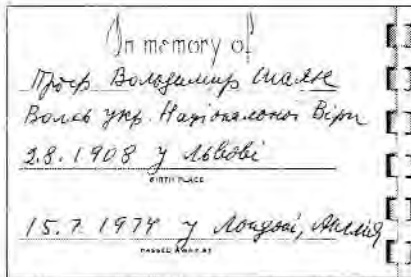 In memory of
Проф Володимир Шаян
Волхв укр. Національної Віри
2.8.1908 у Львові
BIRTH PLACE
15.7.1974 у Лондоні, Англія
PASSED AWAY AT